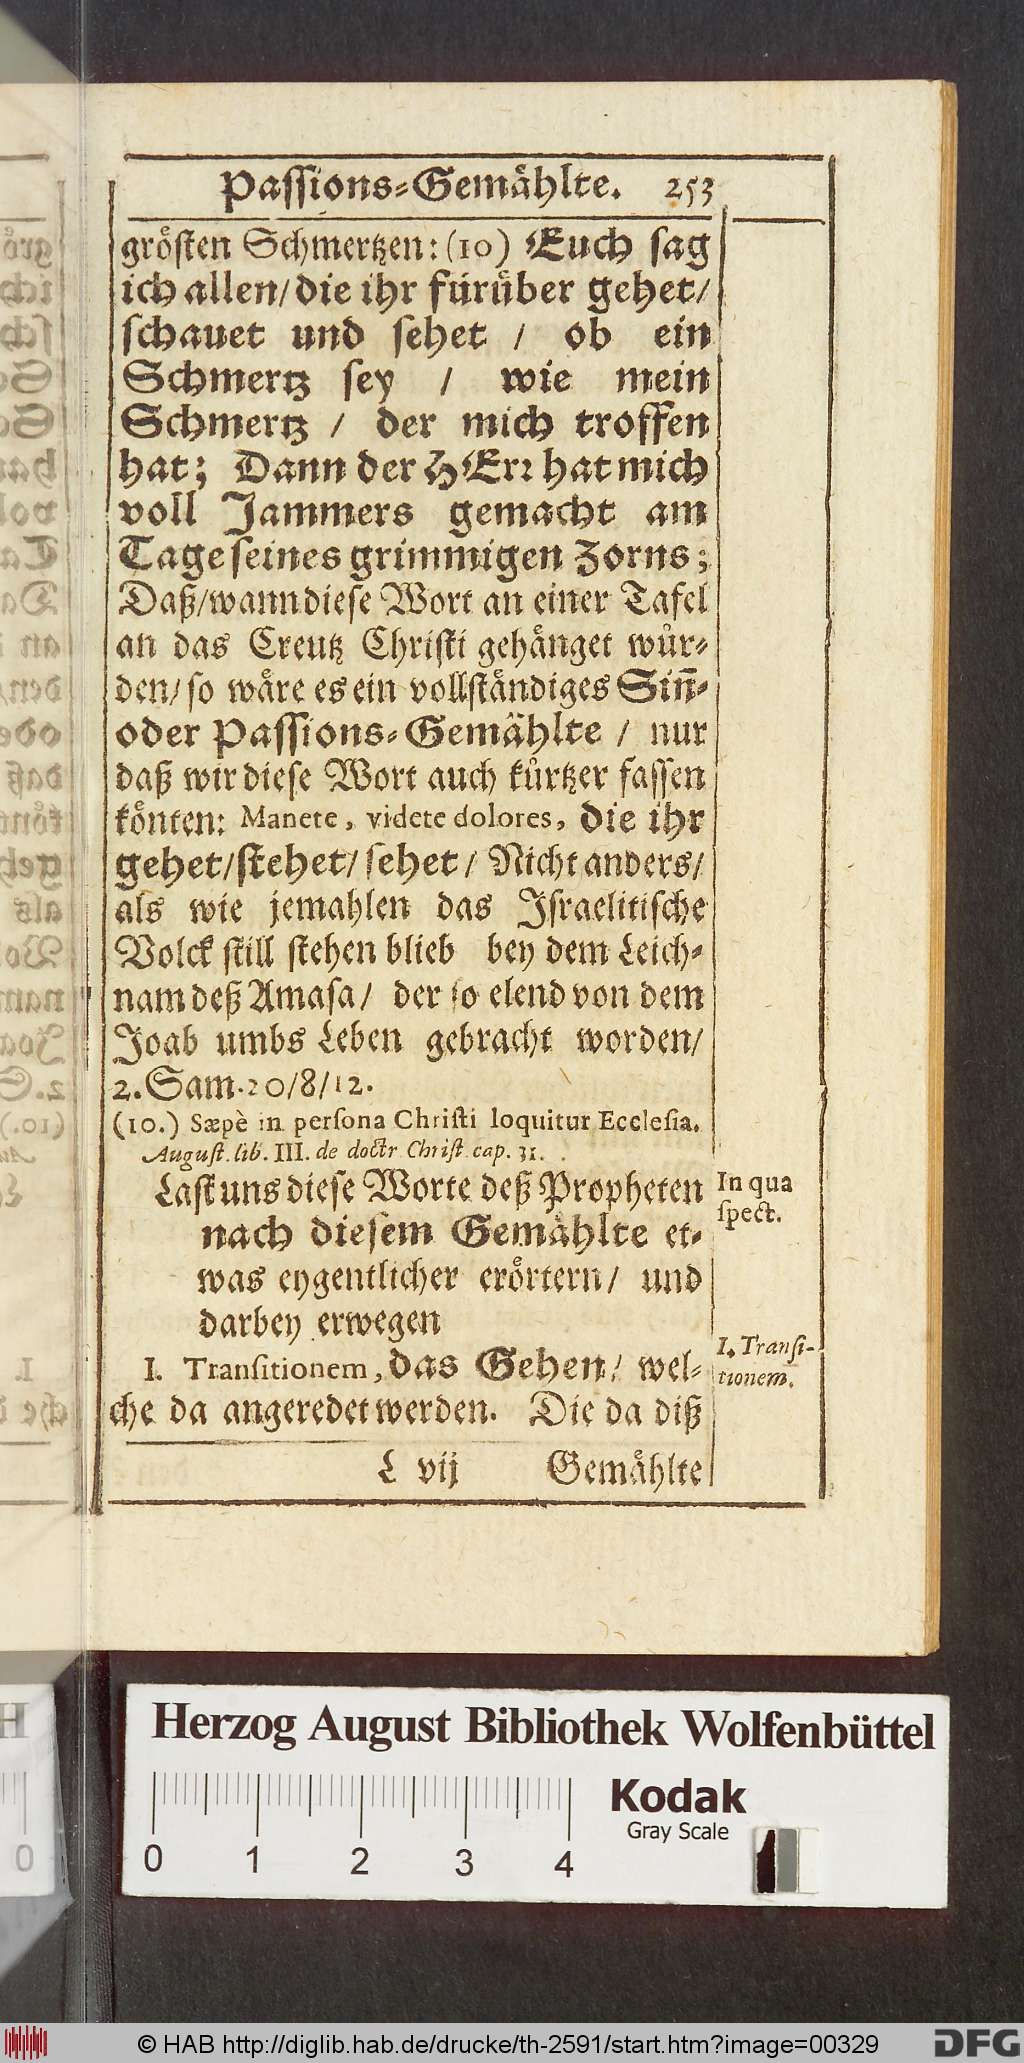 Passions-Gemählte. 253
grösten Schmertzen: (10) Euch sag
ich allen/ die ihr fürüber gehet/
schauet und sehet / ob ein
Schmertz sey / wie mein
Schmertz / der mich troffen
hat; Dann der HErr hat mich
voll Jammers gemacht am
Tage seines grimmigen Zorns;
Daß/ wann diese Wort an einer Tafel
an das Creutz Christi gehänget wür-
den/ so wäre es ein vollständiges Sinn̄-
oder Passions-Gemählte / nur
daß wir diese Wort auch kürtzer fassen
könten: Manete, videte dolores, die ihr
gehet/ stehet/ sehet / Nicht anders/
als wie jemahlen das Israelitische
Volck still stehen blieb bey dem Leich-
nam deß Amasa/ der so elend von dem
Joab umbs Leben gebracht worden/
2. Sam. 20/8/12.
(10.) Sæpè in persona Christi loquitur Ecclesia.
August. lib. III. de doctr Christ. cap. 31.
Last uns diese Worte deß Propheten
nach diesem Gemählte et-
was eygentlicher erörtern/ und
darbey erwegen
In qua
spect.
I. Transitionem, das Gehen/ wel-
che da angeredet werden. Die da diß
I. Transi-
tionem.
L vij Gemählte
Herzog August Bibliothek Wolfenbüttel
Kodak
Gray Scale
0 1 2 3 4
© HAB http://diglib.hab.de/drucke/th-2591/start.htm?image=00329
DFG